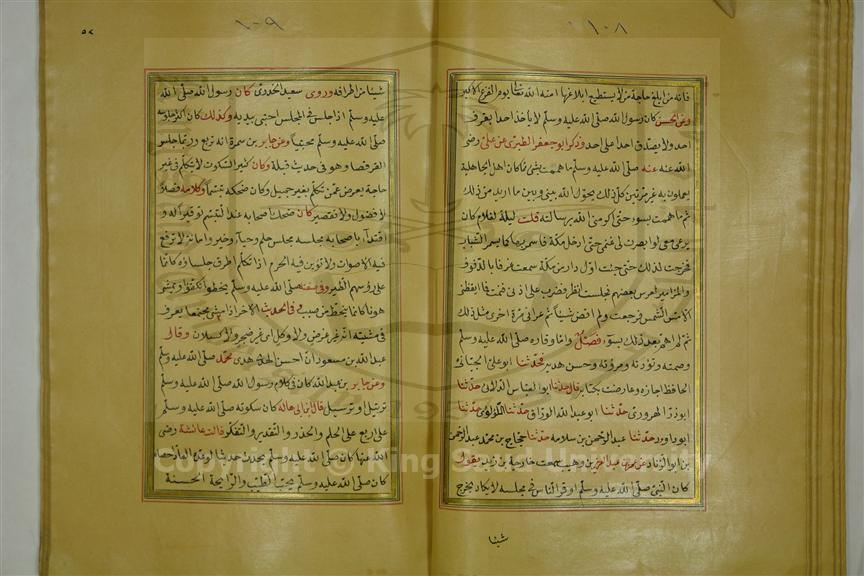 ١٠٨
فانه من ابلغ حاجة من لا يستطيع ابلاغها امنه الله تعالى يوم الفزع الاكبر
وعن الحسن كان رسول الله صلى الله عليه وسلم لا ياخذ احدا بقرف
احد ولا يصدق احدا على احد وذكر ابو جعفر الطبرى عن على رضى
الله عنه عنه صلى الله عليه وسلم ما هممت بشئ مما كان اهل الجاهلية
يعملون به غير مرتين كل ذلك يحول الله بينى وبين ما اريد من ذلك
ثم ما هممت بسوء حتى اكرمنى الله برسالته قلت ليلة لغلام كان
يرعى معى لو ابصرت لى غنمى حتى ادخل مكة فاسمر بها كما يسمر الشباب
فخرجت لذلك حتى جئت اول دار من مكة سمعت عزفا بالدفوف
والمزامير لعرس بعضهم فجلست انظر فضرب على اذنى فنمت فما ايقظنى
الا مس الشمس فرجعت ولم اقض شيئا ثم عرانى مرة اخرى مثل ذلك
ثم لم اهم بعد ذلك بسوء فصل واما وقاره صلى الله عليه وسلم
وصمته وتؤدته ومروءته وحسن هديه فحدثنا ابو على الجيانى
الحافظ اجازة وعارضت بكتابه قال حدثنا ابو العباس الدلائى حدثنا
ابو ذر الهروى حدثنا ابو عبد الله الوراق حدثنا اللؤلؤى حدثنا
ابو داود حدثنا عبد الرحمن بن سلامه حدثنا حجاج بن محمد عبد الرحمن
بن ابو الزناد عن عبد العزيز بن وهيب سمعت خارجة بن زيد يقول
كان النبى صلى الله عليه وسلم اوقر الناس فى مجلسه لا يكاد يخرج
شيئا
١٠٩
٥٧
شيئا من اطرافه وروى سعيد الخدرى كان رسول الله صلى الله
عليه وسلم اذا جلس فى المجلس احتبى بيديه وكذلك كان اكثر جلوسه
صلى الله عليه وسلم محتبيا وعن جابر بن سمرة انه تربع وربما جلس
القرفصا وهو فى حديث قيلة وكان كثير السكوت لا يتكلم فى غير
حاجة يعرض عمن تكلم بغير جميل وكان ضحكه تبسما وكلامه فصلا
لا فضول ولا تقصير كان ضحك اصحابه عنده التبسم توقيرا له و
اقتداء به مجلسه مجلس حلم وحياء وخير وامانة لا ترفع
فيه الاصوات ولا تؤبن فيه الحرم اذا تكلم اطرق جلساؤه كانما
على رؤسهم الطير وفى صفته صلى الله عليه وسلم يخطو تكفؤا ويمشى
هونا كانما ينحط من صبب وفى الحديث الاخر اذا مشى مجتمعا يعرف
فى مشيته انه غير غرض ولا وكل اى غير ضجر ولا كسلان وقال
عبد الله بن مسعود ان احسن الهدى هدى محمد صلى الله عليه وسلم
وعن جابر بن عبد الله كان فى كلام رسول الله صلى الله عليه وسلم
ترتيل او ترسيل قال ابن ابى هالة كان سكوته صلى الله عليه وسلم
على اربع على الحلم والحذر والتقدير والتفكر قالت عائشة رضى
الله عنها كان صلى الله عليه وسلم يحدث حديثا لو عده العاد احصاه
كان صلى الله عليه وسلم يحب الطيب والرايحة الحسنة
Copyright © King Saud University